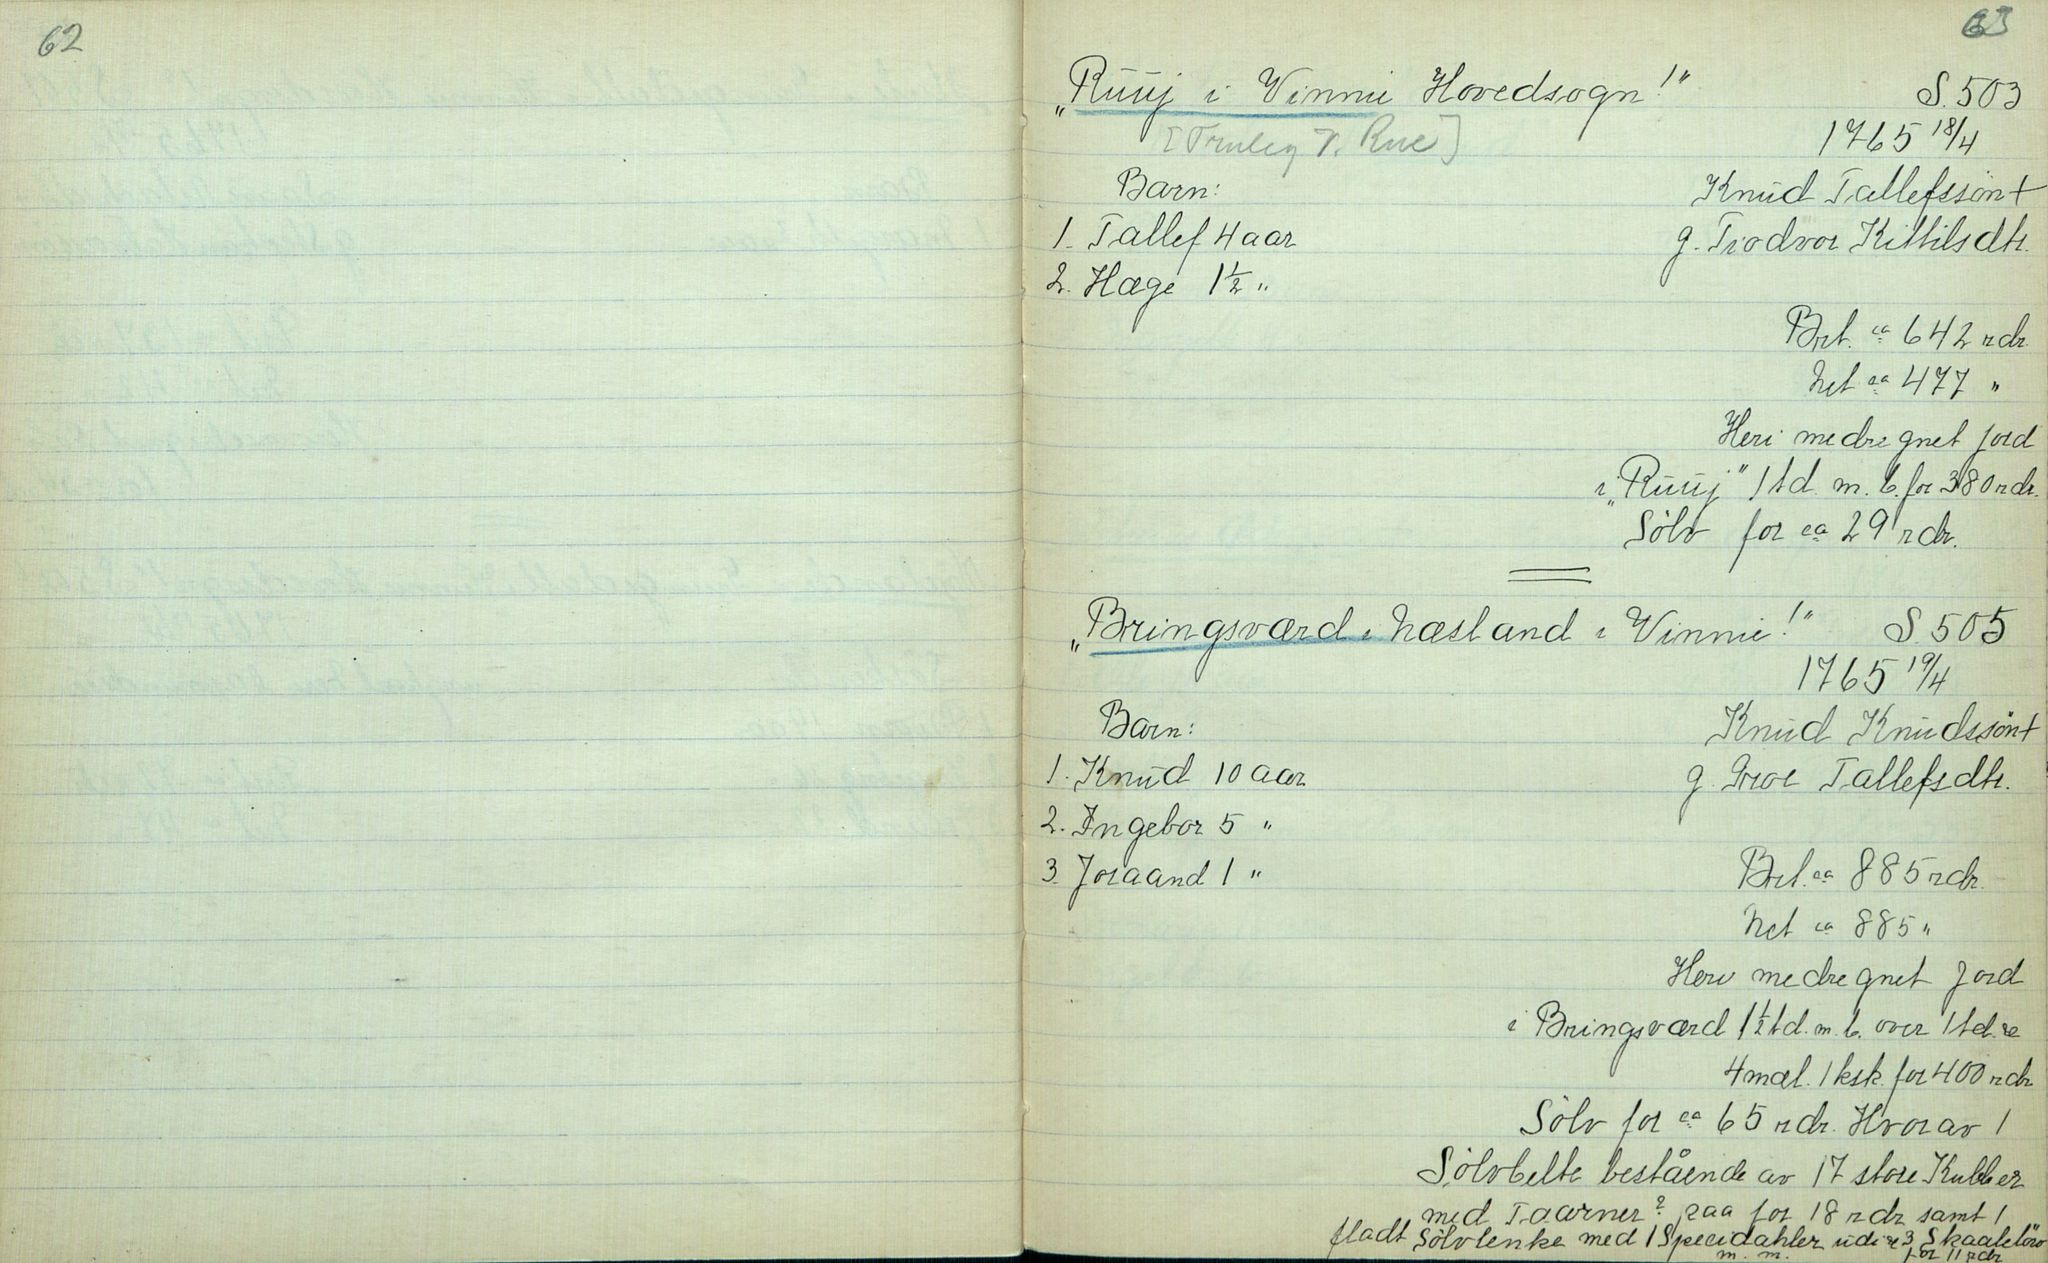 62
63
„Ruuj i Vinnie Hovedsogn!" S. 503
1765 18/4
Barn: Knud Tallefssøn+
1. Tallef 4 aar g. Tiodvor Kittilsdtr.
2. Hæge 1½ "
Brt. ca 642 rdr.
Net ca 477 "
Heri medregnet jord
i „Ruuj" 1 td. m. b. for 380 rdr.
Sølv for ca 29 rdr.
„Bringsværd i Næsland i Vinnie!" S. 505
1765 19/4
Barn: Knud Knudssøn+
1. Knud 10 aar g. Groe Tallefsdtr.
2. Ingebor 5 "
3. Joraand 1 " Brt. ca 885 rdr.
Net ca 885 "
Heri medregnet Jord
i Bringsværd 1½ td. m. b. over 1 td.
4 mæl. 1 ksk. for 400 rdr
Sølv for ca 65 rdr. Hvorav 1
Sølvbelte bestående av 17 store Kubber
med Taarner? paa for 18 rdr samt 1
fladt Sølvlenke med 1 Speciedahler udi 3
m. m. for 11 rdr